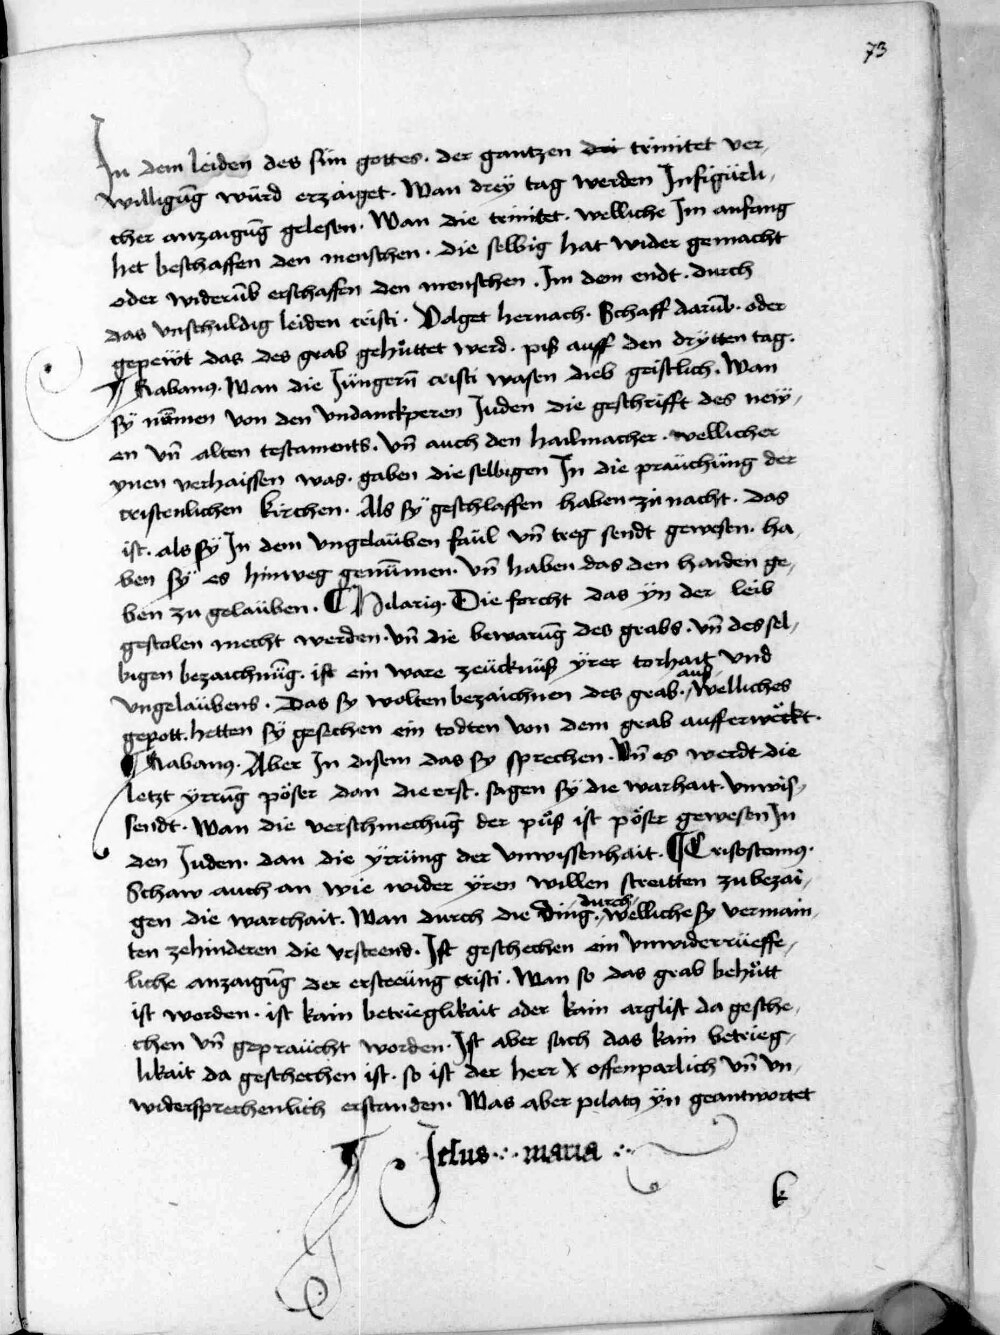 73
In dem leiden des sün gottes. der gantzen dri trinitet ver-
willigūg würd erzaiget. Wan dreÿ tag werden Infigürli-
cher anzaigūg gelesen. Wan die trinitet. welliche Im anfang
het beschaffen den menschen. die selbig hat wider gemacht
oder widerūb erschaffen den menschen. Im dem endt. durch
das vnschuldig leiden cristi. Volget hernach. Schaff darūb. oder
gepeẅt das des grab gehüttet werd. piß auff den drÿtten tag.
¶ Rabanꝰ. Wan die Jüngern̄ cristi wasen dieb geistlich. Wan
sÿ nāmen von den vndanckperen Juden die geschrifft des neẅ-
en vn̄ alten testaments. vn̄ auch den hailmacher. wellicher
ynen verhaissen was. gaben die selbigen In die praüchüng der
cristenlichen kirchen. Als sÿ geschlaffen haben zü nacht. das
ist. als sÿ In dem vngelaüben faül vn̄ treg sendt gewesen. ha-
ben sÿ es hinweg genūmen. vn̄ haben das den haiden ge-
ben zu gelaüben. ¶ Hilariꝰ. Die forcht das yn der leib
gestolen mecht werden. vn̄ die bewarūg des grabs. vn̄ des sel-
bigen bezaichnūg. ist ein ware zeücknüß ÿrer torhait vnd
vngelaübens. Das sy wolten bezaichnen des grab. aus welliches
gepott. hetten sÿ gesechen ein todten von dem grab aufferweckt.
¶ Rabanꝰ. Aber In disem das sy sprechen. Vn̄ es werdt die
letzt ÿrrūg pöser dan die erst. sagen sÿ die warhait. vnwis-
sendt. Wan die verschmechūg der püß ist pöser gewesen In
den Juden. dan die ÿrrüng der vnwissenhait. ¶ Crisostomꝰ.
Schaw auch an wie wider ÿren willen streitten zu bezai-
gen die warchait. Wan durch die ding. durch welliche sy vermain-
ten zehinderen die vrsteend. Ist geschechen ein vnwiderrüeffe-
liche anzaigūg der ersteeüng cristi. Wan so das grab behütt
ist worden. ist kain betrieglikait oder kain arglist da gesche-
chen vn̄ gepraücht worden. Ist aber sach das kain betrieg-
likait da geschechen ist. so ist der herr X offenparlich vn̄ vn-
widersprechenlich erstanden. Was aber pilatꝰ yn geantwortet
Jesus maria
k